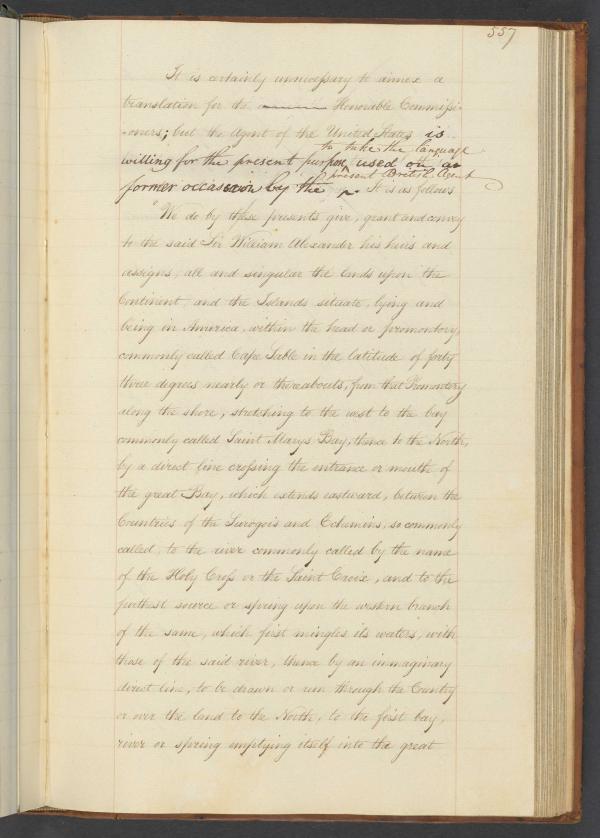 557
It is certainly unnecessary to annex a
translation for the Honorable Commissi-
-oners; but the Agent of the United States is
to take the language
willing for the present purpose, used on a
present British Agent
former occasion by the It is as follows
"We do by these presents give, grant and convey
to the said Sir William Alexander his heirs and
assigns, all and singular the lands upon the
Continent, and the Islands situate, lying and
being in America, within the head or promontory,
commonly called Cape Sable in the latitude of forty
three degrees nearly or thereabouts, from that Promontory
along the shore, stretching to the west to the bay
commonly called Saint Marys Bay, thence to the North,
by a direct line crossing the entrance or mouth of
the great Bay, which extends eastward, between the
Countries of the Surogois and Echemins, so commonly
called, to the river commonly called by the name
of the Holy Cross or the Saint Croix, and to the
furthest source or spring upon the western branch
of the same, which first mingles its waters, with
those of the said river, thence by an immaginary
direct line, to be drawn or run through the Country
or over the land to the North, to the first bay,
river or spring emptying itself into the great